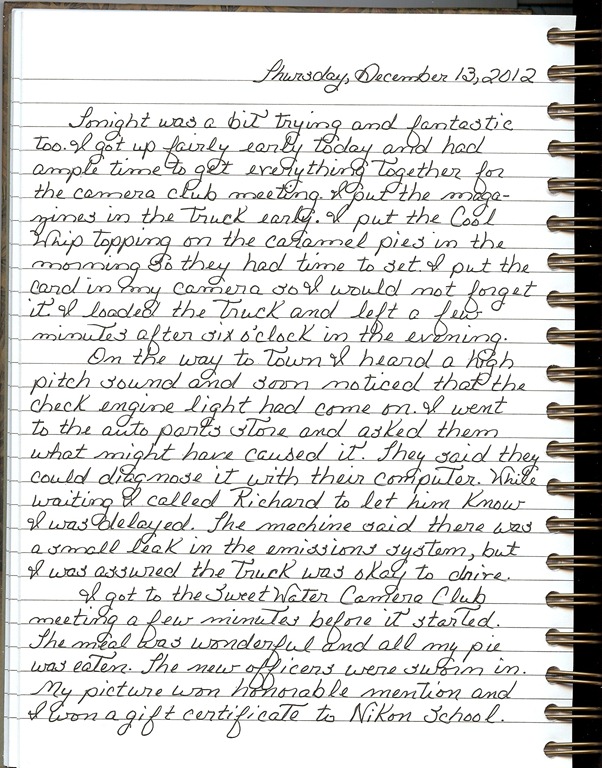 Thursday, December 13, 2012
Tonight was a bit trying and fantastic
too. I got up fairly early today and had
ample time to get everything together for
the camera club meeting. I put the maga-
zines in the truck early. I put the Cool
Whip topping on the caramel pies in the
morning so they had time to set. I put the
card in my camera so I would not forget
it. I loaded the truck and left a few
minutes after six o'clock in the evening.
On the way to town I heard a high
pitch sound and soon noticed that the
check engine light had come on. I went
to the auto parts store and asked them
what might have caused it. They said they
could diagnose it with their computer. While
waiting I called Richard to let him know
I was delayed. The machine said there was
a small leak in the emissions system, but
I was assured the truck was okay to drive.
I got to the Sweet Water Camera Club
meeting a few minutes before it started.
The meal was wonderful and all my pie
was eaten. The new officers were sworn in.
My picture won honorable mention and
I won a gift certificate to Nikon School.